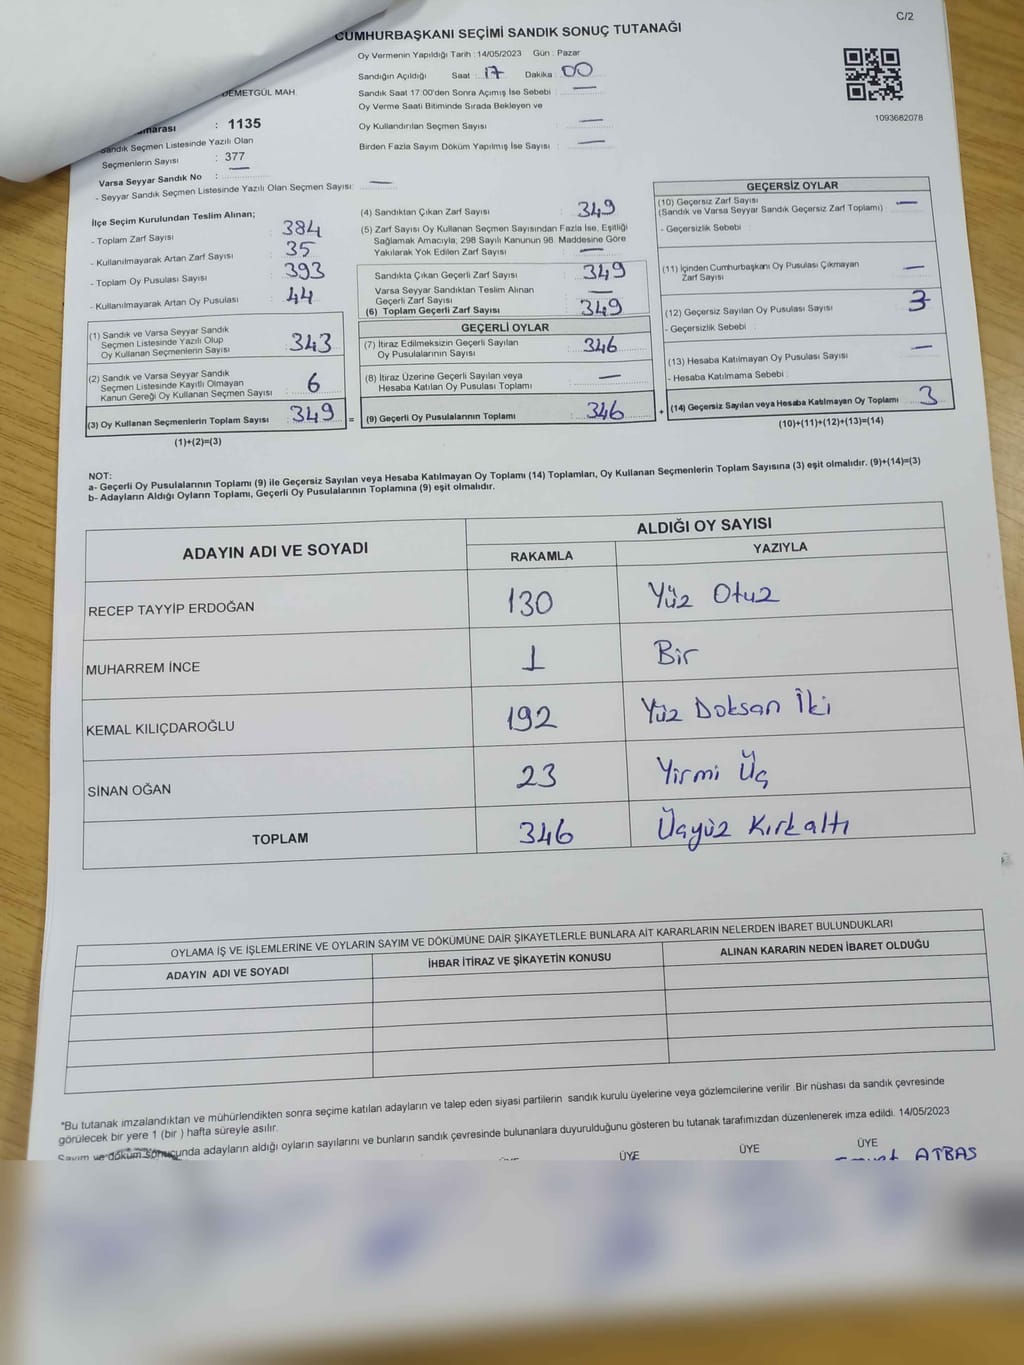 C/2
CUMHURBAŞKANI SEÇİMİ SANDIK SONUÇ TUTANAĞI
Oy Vermenin Yapıldığı Tarih : 14/05/2023 Gün : Pazar
Sandığın Açıldığı Saat : 17 Dakika : 00
Sandık Saat 17.00'den Sonra Açımış İse Sebebi : —
Oy Verme Saati Bitiminde Sırada Bekleyen ve
Oy Kullandırılan Seçmen Sayısı : —
Birden Fazla Sayım Döküm Yapılmış İse Sayısı : —
1093682078
DEMETGÜL MAH.
: 1135
Sandık Seçmen Listesinde Yazılı Olan
Seçmenlerin Sayısı : 377
Varsa Seyyar Sandık No : —
- Seyyar Sandık Seçmen Listesinde Yazılı Olan Seçmen Sayısı: —
İlçe Seçim Kurulundan Teslim Alınan;
- Toplam Zarf Sayısı : 384
- Kullanılmayarak Artan Zarf Sayısı : 35
- Toplam Oy Pusulası Sayısı : 393
- Kullanılmayarak Artan Oy Pusulası : 44
(1) Sandık ve Varsa Seyyar Sandık
Seçmen Listesinde Yazılı Olup
Oy Kullanan Seçmenlerin Sayısı : 343
(2) Sandık ve Varsa Seyyar Sandık
Seçmen Listesinde Kayıtlı Olmayan
Kanun Gereği Oy Kullanan Seçmen Sayısı : 6
(3) Oy Kullanan Seçmenlerin Toplam Sayısı : 349 =
(1)+(2)=(3)
(4) Sandıktan Çıkan Zarf Sayısı : 349
(5) Zarf Sayısı Oy Kullanan Seçmen Sayısından Fazla İse, Eşitliği
Sağlamak Amacıyla; 298 Sayılı Kanunun 98. Maddesine Göre
Yakılarak Yok Edilen Zarf Sayısı : —
Sandıkta Çıkan Geçerli Zarf Sayısı : 349
Varsa Seyyar Sandıktan Teslim Alınan
Geçerli Zarf Sayısı : —
(6) Toplam Geçerli Zarf Sayısı : 349
GEÇERLİ OYLAR
(7) İtiraz Edilmeksizin Geçerli Sayılan
Oy Pusulalarının Sayısı : 346
(8) İtiraz Üzerine Geçerli Sayılan veya
Hesaba Katılan Oy Pusulası Toplamı : —
(9) Geçerli Oy Pusulalarının Toplamı : 346 +
GEÇERSİZ OYLAR
(10) Geçersiz Zarf Sayısı : —
(Sandık ve Varsa Seyyar Sandık Geçersiz Zarf Toplamı)
- Geçersizlik Sebebi :
(11) İçinden Cumhurbaşkanı Oy Pusulası Çıkmayan
Zarf Sayısı : —
(12) Geçersiz Sayılan Oy Pusulası Sayısı : 3
- Geçersizlik Sebebi :
(13) Hesaba Katılmayan Oy Pusulası Sayısı : —
- Hesaba Katılmama Sebebi :
(14) Geçersiz Sayılan veya Hesaba Katılmayan Oy Toplamı : 3
(10)+(11)+(12)+(13)=(14)
NOT:
a- Geçerli Oy Pusulalarının Toplamı (9) ile Geçersiz Sayılan veya Hesaba Katılmayan Oy Toplamı (14) Toplamları, Oy Kullanan Seçmenlerin Toplam Sayısına (3) eşit olmalıdır. (9)+(14)=(3)
b- Adayların Aldığı Oyların Toplamı, Geçerli Oy Pusulalarının Toplamına (9) eşit olmalıdır.
ADAYIN ADI VE SOYADI
ALDIĞI OY SAYISI
RAKAMLA YAZIYLA
RECEP TAYYİP ERDOĞAN 130 Yüz Otuz
MUHARREM İNCE 1 Bir
KEMAL KILIÇDAROĞLU 192 Yüz Doksan İki
SİNAN OĞAN 23 Yirmi Üç
TOPLAM 346 Üçyüz Kırkaltı
OYLAMA İŞ VE İŞLEMLERİNE VE OYLARIN SAYIM VE DÖKÜMÜNE DAİR ŞİKAYETLERLE BUNLARA AİT KARARLARIN NELERDEN İBARET BULUNDUKLARI
ADAYIN ADI VE SOYADI İHBAR İTİRAZ VE ŞİKAYETİN KONUSU ALINAN KARARIN NEDEN İBARET OLDUĞU
*Bu tutanak imzalandıktan ve mühürlendikten sonra seçime katılan adayların ve talep eden siyasi partilerin sandık kurulu üyelerine veya gözlemcilerine verilir .Bir nüshası da sandık çevresinde
görülecek bir yere 1 (bir ) hafta süreyle asılır.
Sayım ve döküm sonucunda adayların aldığı oyların sayılarını ve bunların sandık çevresinde bulunanlara duyurulduğunu gösteren bu tutanak tarafımızdan düzenlenerek imza edildi. 14/05/2023
ÜYE ÜYE ÜYE
ATBAŞ